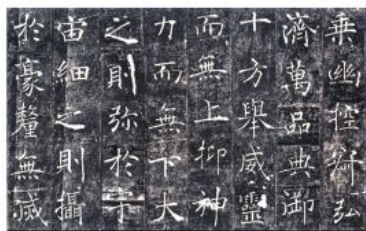 乗幽控寂弘
濟萬品典御
十方舉威靈
而無上抑神
力而無下大
之則弥於宇
宙細之則攝
於豪釐無滅